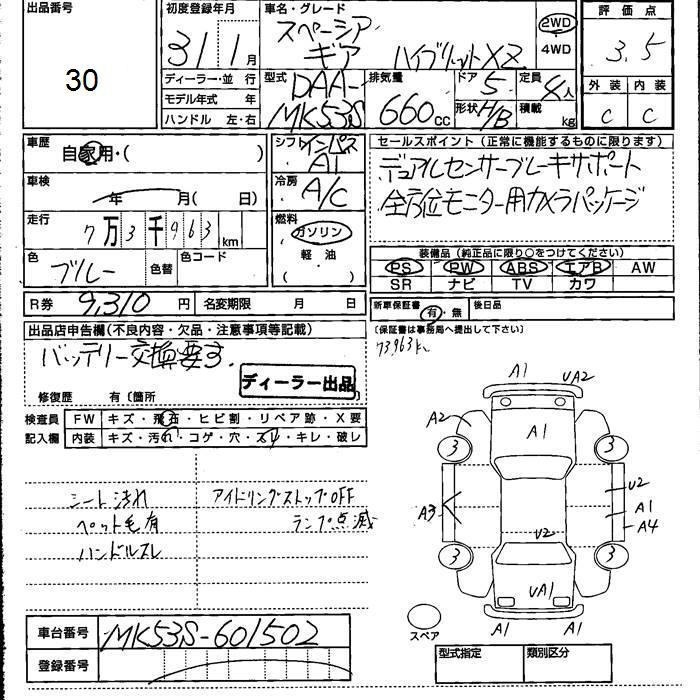 出品番号 30
初度登録年月 31 1 月
車名・グレード スペーシア ギア ハイブリットXZ
2WD
4WD
評価点 3.5
外装 内装
C C
ディーラー・並行
モデル年式 年
ハンドル 左・右
型式 DAA-MK53S
排気量 660 cc
ドア 5
形状 H/B
定員 4人
積載 kg
車歴 自家用・( )
車検 年 月( 日)
走行 7万3千963 km
色 ブルー 色替 色コード
シフト インパネ AT
冷房 A/C
燃料 ガソリン
軽油
( )
セールスポイント(正常に機能するものに限ります)
デュアルセンサーブレーキサポート
全方位モニター用カメラパッケージ
装備品(純正品に限り○をつけてください)
PS PW ABS エアB AW
SR ナビ TV カワ
R券 9,310 円 名変期限 月 日
新車保証書 有・無 後日品
(保証書は事務局へ提出して下さい)
73963km
出品店申告欄(不良内容・欠品・注意事項等記載)
バッテリー交換要す。
ディーラー出品
修復歴 有(箇所 )
検査員記入欄
FW キズ・飛石・ヒビ割・リペア跡・X要
内装 キズ・汚れ・コゲ・穴・スレ・キレ・破レ
シート汚れ
ペット毛有
ハンドルスレ
アイドリングストップOFF
ランプ点滅
A1 UA2
A2 A1
3 3
A3 U2 A1 A4
U2
3 3
UA1
A1 A1
スペア
車台番号 MK53S-601502
登録番号
型式指定 類別区分